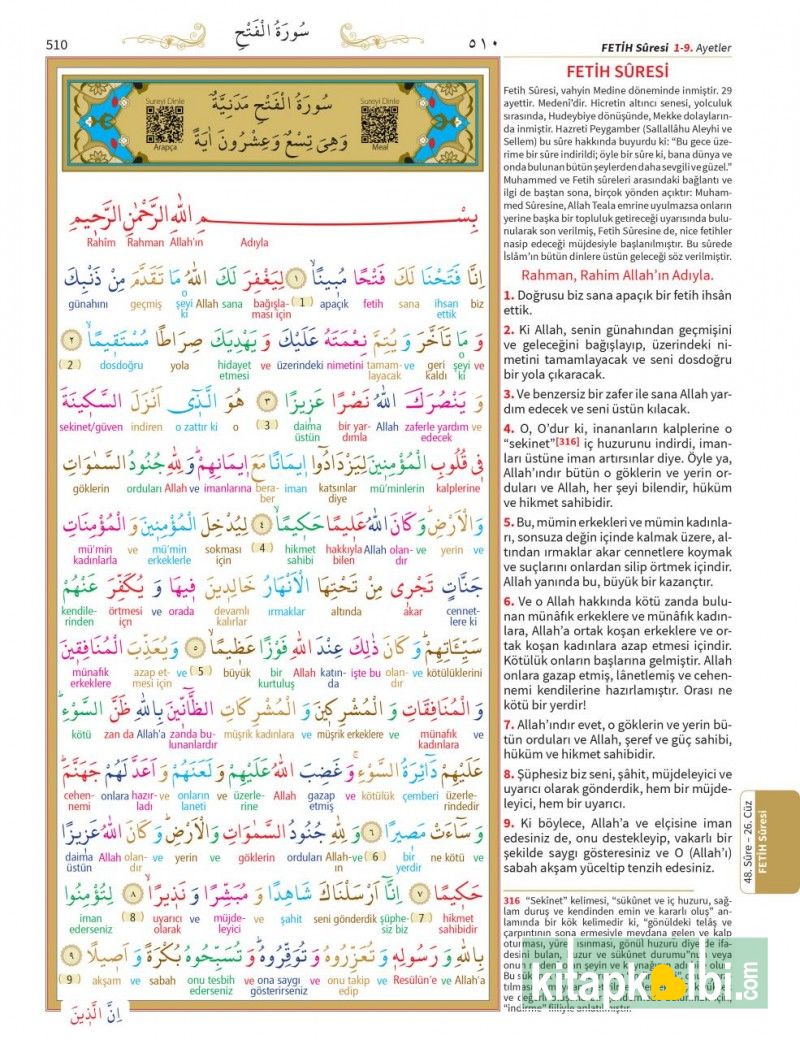 510
سُورَةُ الْفَتْحِ
٥١٠
FETİH Sûresi 1-9. Ayetler
Sureyi Dinle
Arapça
سُورَةُ الْفَتْحِ مَدَنِيَّةٌ
وَهِىَ تِسْعٌ وَعِشْرُونَ اٰيَةً
Sureyi Dinle
Meal
بِسْمِ اللّٰهِ الرَّحْمٰنِ الرَّحِيمِ
Rahîm Rahman Allah'ın Adıyla
اِنَّا فَتَحْنَا لَكَ فَتْحًا مُبِينًا ١ لِيَغْفِرَ لَكَ اللّٰهُ مَا تَقَدَّمَ مِنْ ذَنْبِكَ
günahını geçmiş o şeyi ki Allah sana bağışlaması için (1) apaçık fetih sana ihsan ettik biz
وَ مَا تَاَخَّرَ وَ يُتِمَّ نِعْمَتَهُ عَلَيْكَ وَ يَهْدِيَكَ صِرَاطًا مُسْتَقِيمًا ٢
(2) dosdoğru yola hidayet etmesi ve üzerindeki nimetini tamamlayacak ve geri kaldı o şeyi ki ve
وَ يَنْصُرَكَ اللّٰهُ نَصْرًا عَزِيزًا ٣ هُوَ الَّذِى اَنْزَلَ السَّكِينَةَ
sekinet/güven indiren o zattır ki o (3) daima üstün bir yardımla Allah zaferle yardım edecek ve
فِى قُلُوبِ الْمُؤْمِنِينَ لِيَزْدَادُوا اِيمَانًا مَعَ اِيمَانِهِمْ وَ لِلّٰهِ جُنُودُ السَّمٰوَاتِ
göklerin orduları Allah ve imanlarına beraber iman katsınlar diye mü'minlerin kalplerine
وَ الْاَرْضِ وَ كَانَ اللّٰهُ عَلِيمًا حَكِيمًا ٤ لِيُدْخِلَ الْمُؤْمِنِينَ وَ الْمُؤْمِنَاتِ
mü'min kadınlarla ve mü'min erkeklerle sokması için (4) hikmet sahibi hakkıyla bilen Allah olandır ve yerin ve
جَنَّاتٍ تَجْرِى مِنْ تَحْتِهَا الْاَنْهَارُ خَالِدِينَ فِيهَا وَ يُكَفِّرَ عَنْهُمْ
kendilerinden örtmesi için ve orada devamlı kalırlar ırmaklar altında akar cennetlere ki
سَيِّئَاتِهِمْ وَ كَانَ ذٰلِكَ عِنْدَ اللّٰهِ فَوْزًا عَظِيمًا ٥ وَ يُعَذِّبَ الْمُنَافِقِينَ
münafık erkeklere azap etmesi için ve (5) büyük bir kurtuluş Allah katında işte bu olandır ve kötülüklerini
وَ الْمُنَافِقَاتِ وَ الْمُشْرِكِينَ وَ الْمُشْرِكَاتِ الظَّانِّينَ بِاللّٰهِ ظَنَّ السَّوْءِ
kötü zan da Allah'a zanda bulunanlardır müşrik kadınlara ve müşrik erkeklere ve münafık kadınlara ve
عَلَيْهِمْ دَائِرَةُ السَّوْءِ وَ غَضِبَ اللّٰهُ عَلَيْهِمْ وَ لَعَنَهُمْ وَ اَعَدَّ لَهُمْ جَهَنَّمَ
cehennemi onlara hazırladı ve onların laneti ve üzerlerine Allah gazap etmiş ve kötülük çemberi üzerlerindedir
وَ سَاءَتْ مَصِيرًا ٦ وَ لِلّٰهِ جُنُودُ السَّمٰوَاتِ وَ الْاَرْضِ وَ كَانَ اللّٰهُ عَزِيزًا
daima üstün Allah olandır ve yerin ve göklerin orduları Allah ve (6) bir yerdir ne kötü ve
حَكِيمًا ٧ اِنَّا اَرْسَلْنَاكَ شَاهِدًا وَ مُبَشِّرًا وَ نَذِيرًا ٨ لِتُؤْمِنُوا
iman ederseniz (8) uyarıcı olarak ve müjdeleyici ve şahit seni gönderdik şüphesiz biz (7) hikmet sahibidir
بِاللّٰهِ وَ رَسُولِهِ وَ تُعَزِّرُوهُ وَ تُوَقِّرُوهُ وَ تُسَبِّحُوهُ بُكْرَةً وَ اَصِيلًا ٩
(9) akşam ve sabah onu tesbih ederseniz ve ona saygı gösterirseniz ve onu takip edip ve Resülün'e ve Allah'a
اِنَّ الَّذِينَ
FETİH SÛRESİ
Fetih Sûresi, vahyin Medine döneminde inmiştir. 29
ayettir. Medenî'dir. Hicretin altıncı senesi, yolculuk
sırasında, Hudeybiye dönüşünde, Mekke dolayların-
da inmiştir. Hazreti Peygamber (Sallallâhu Aleyhi ve
Sellem) bu sûre hakkında buyurdu ki: "Bu gece üze-
rime bir sûre indirildi; öyle bir sûre ki, bana dünya ve
onda bulunan bütün şeylerden daha sevgili ve güzel."
Muhammed ve Fetih sûreleri arasındaki bağlantı ve
ilgi de baştan sona, birçok yönden açıktır: Muham-
med Sûresine, Allah Teala emrine uyulmazsa onların
yerine başka bir topluluk getireceği uyarısında bulu-
nularak son verilmiş, Fetih Sûresine de, nice fetihler
nasip edeceği müjdesiyle başlanılmıştır. Bu sûrede
İslâm'ın bütün dinlere üstün geleceği söz verilmiştir.
Rahman, Rahim Allah'ın Adıyla.
1. Doğrusu biz sana apaçık bir fetih ihsân
ettik.
2. Ki Allah, senin günahından geçmişini
ve geleceğini bağışlayıp, üzerindeki ni-
metini tamamlayacak ve seni dosdoğru
bir yola çıkaracak.
3. Ve benzersiz bir zafer ile sana Allah yar-
dım edecek ve seni üstün kılacak.
4. O, O'dur ki, inananların kalplerine o
"sekinet"[316] iç huzurunu indirdi, iman-
ları üstüne iman artırsınlar diye. Öyle ya,
Allah'ındır bütün o göklerin ve yerin or-
duları ve Allah, her şeyi bilendir, hüküm
ve hikmet sahibidir.
5. Bu, mümin erkekleri ve mümin kadınla-
rı, sonsuza değin içinde kalmak üzere, al-
tından ırmaklar akar cennetlere koymak
ve suçlarını onlardan silip örtmek içindir.
Allah yanında bu, büyük bir kazançtır.
6. Ve o Allah hakkında kötü zanda bulu-
nan münâfık erkeklere ve münâfık kadın-
lara, Allah'a ortak koşan erkeklere ve or-
tak koşan kadınlara azap etmesi içindir.
Kötülük onların başlarına gelmiştir. Allah
onlara gazap etmiş, lânetlemiş ve cehen-
nemi kendilerine hazırlamıştır. Orası ne
kötü bir yerdir!
7. Allah'ındır evet, o göklerin ve yerin bü-
tün orduları ve Allah, şeref ve güç sahibi,
hüküm ve hikmet sahibidir.
8. Şüphesiz biz seni, şâhit, müjdeleyici ve
uyarıcı olarak gönderdik, hem bir müjde-
leyici, hem bir uyarıcı.
9. Ki böylece, Allah'a ve elçisine iman
edesiniz de, onu destekleyip, vakarlı bir
şekilde saygı gösteresiniz ve O (Allah'ı)
sabah akşam yüceltip tenzih edesiniz.
48. Sûre – 26. Cüz
FETİH Sûresi
316 "Sekînet" kelimesi, "sükûnet ve iç huzuru, sağ-
lam duruş ve kendinden emin ve kararlı oluş" an-
lamında bir kök kelimedir ki, "gönüldeki telâş ve
çarpıntının sona ermesiyle meydana gelen ve kalp
"indirme" fiiliyle anlatılmıştır.
kitapkalbi.com